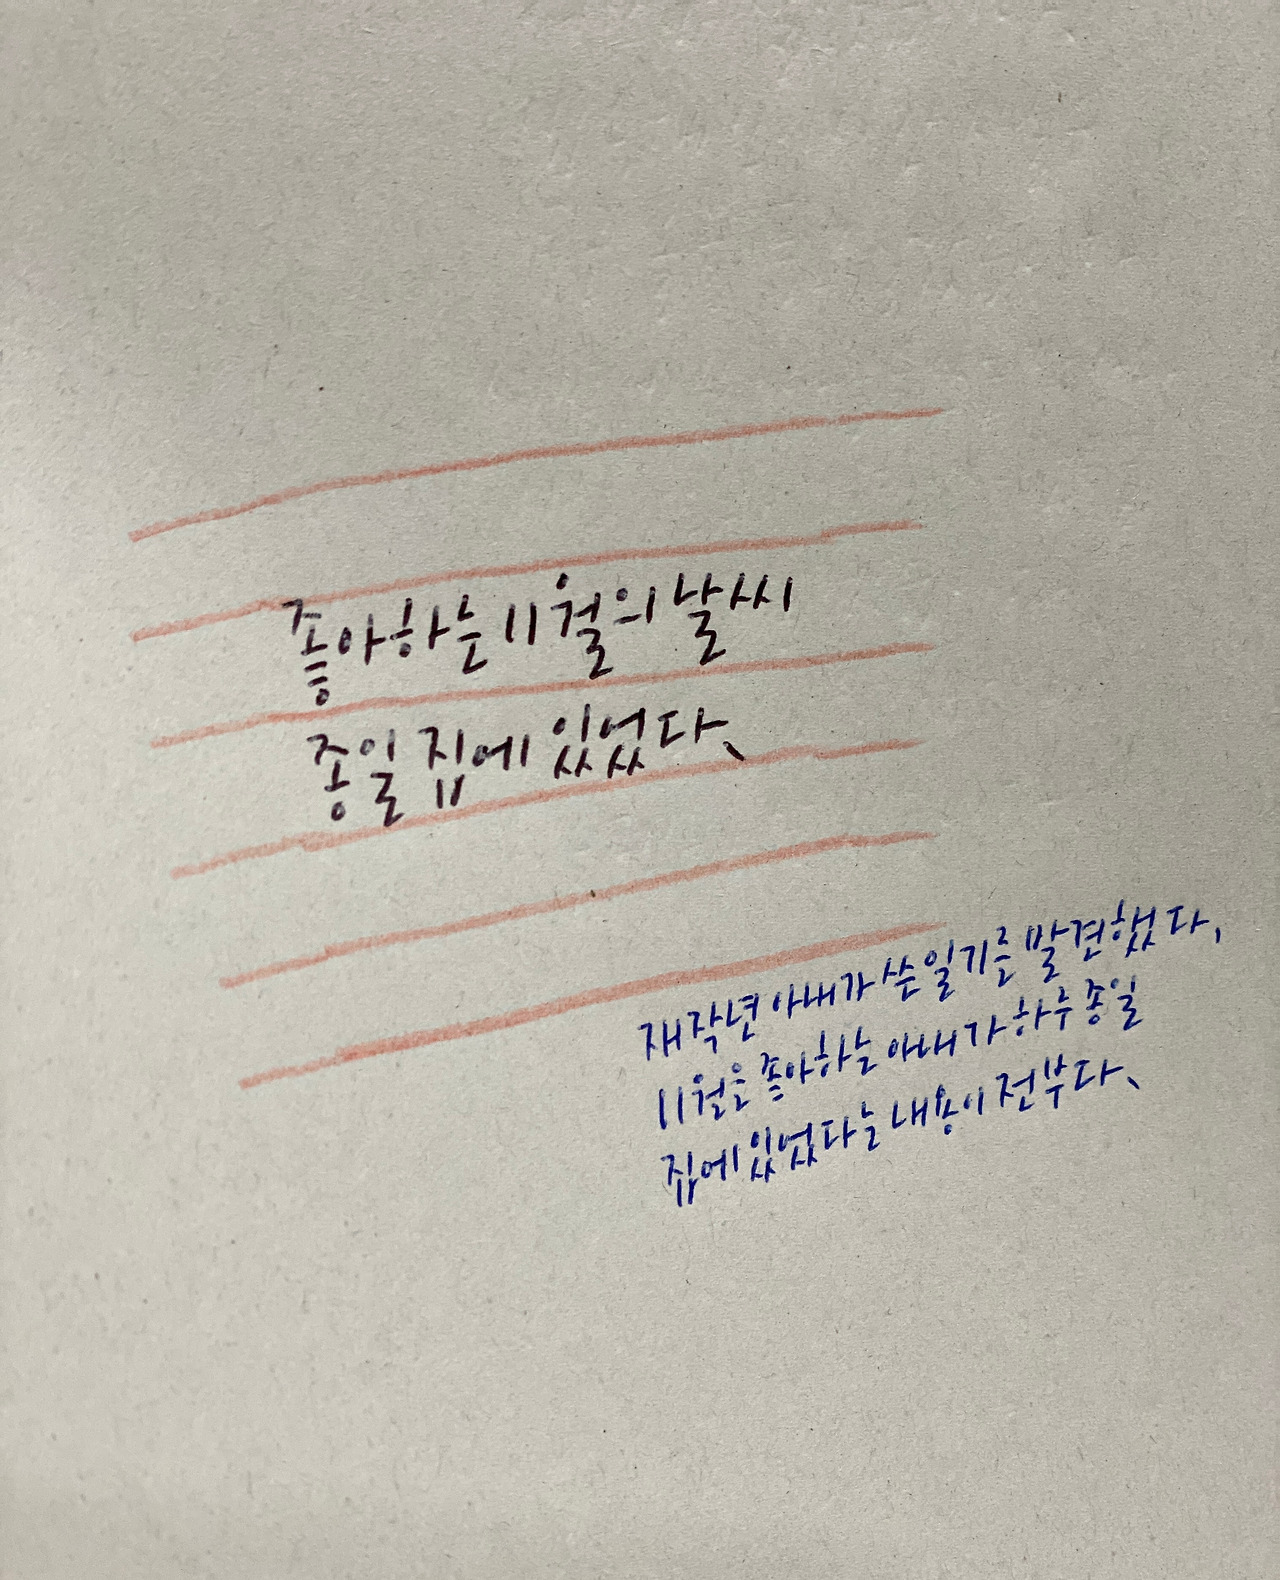 좋아하는 11월의 날씨
종일 집에 있었다.
재작년 아내가 쓴 일기를 발견했다.
11월을 좋아하는 아내가 하루 종일
집에 있었다는 내용이 전부다.